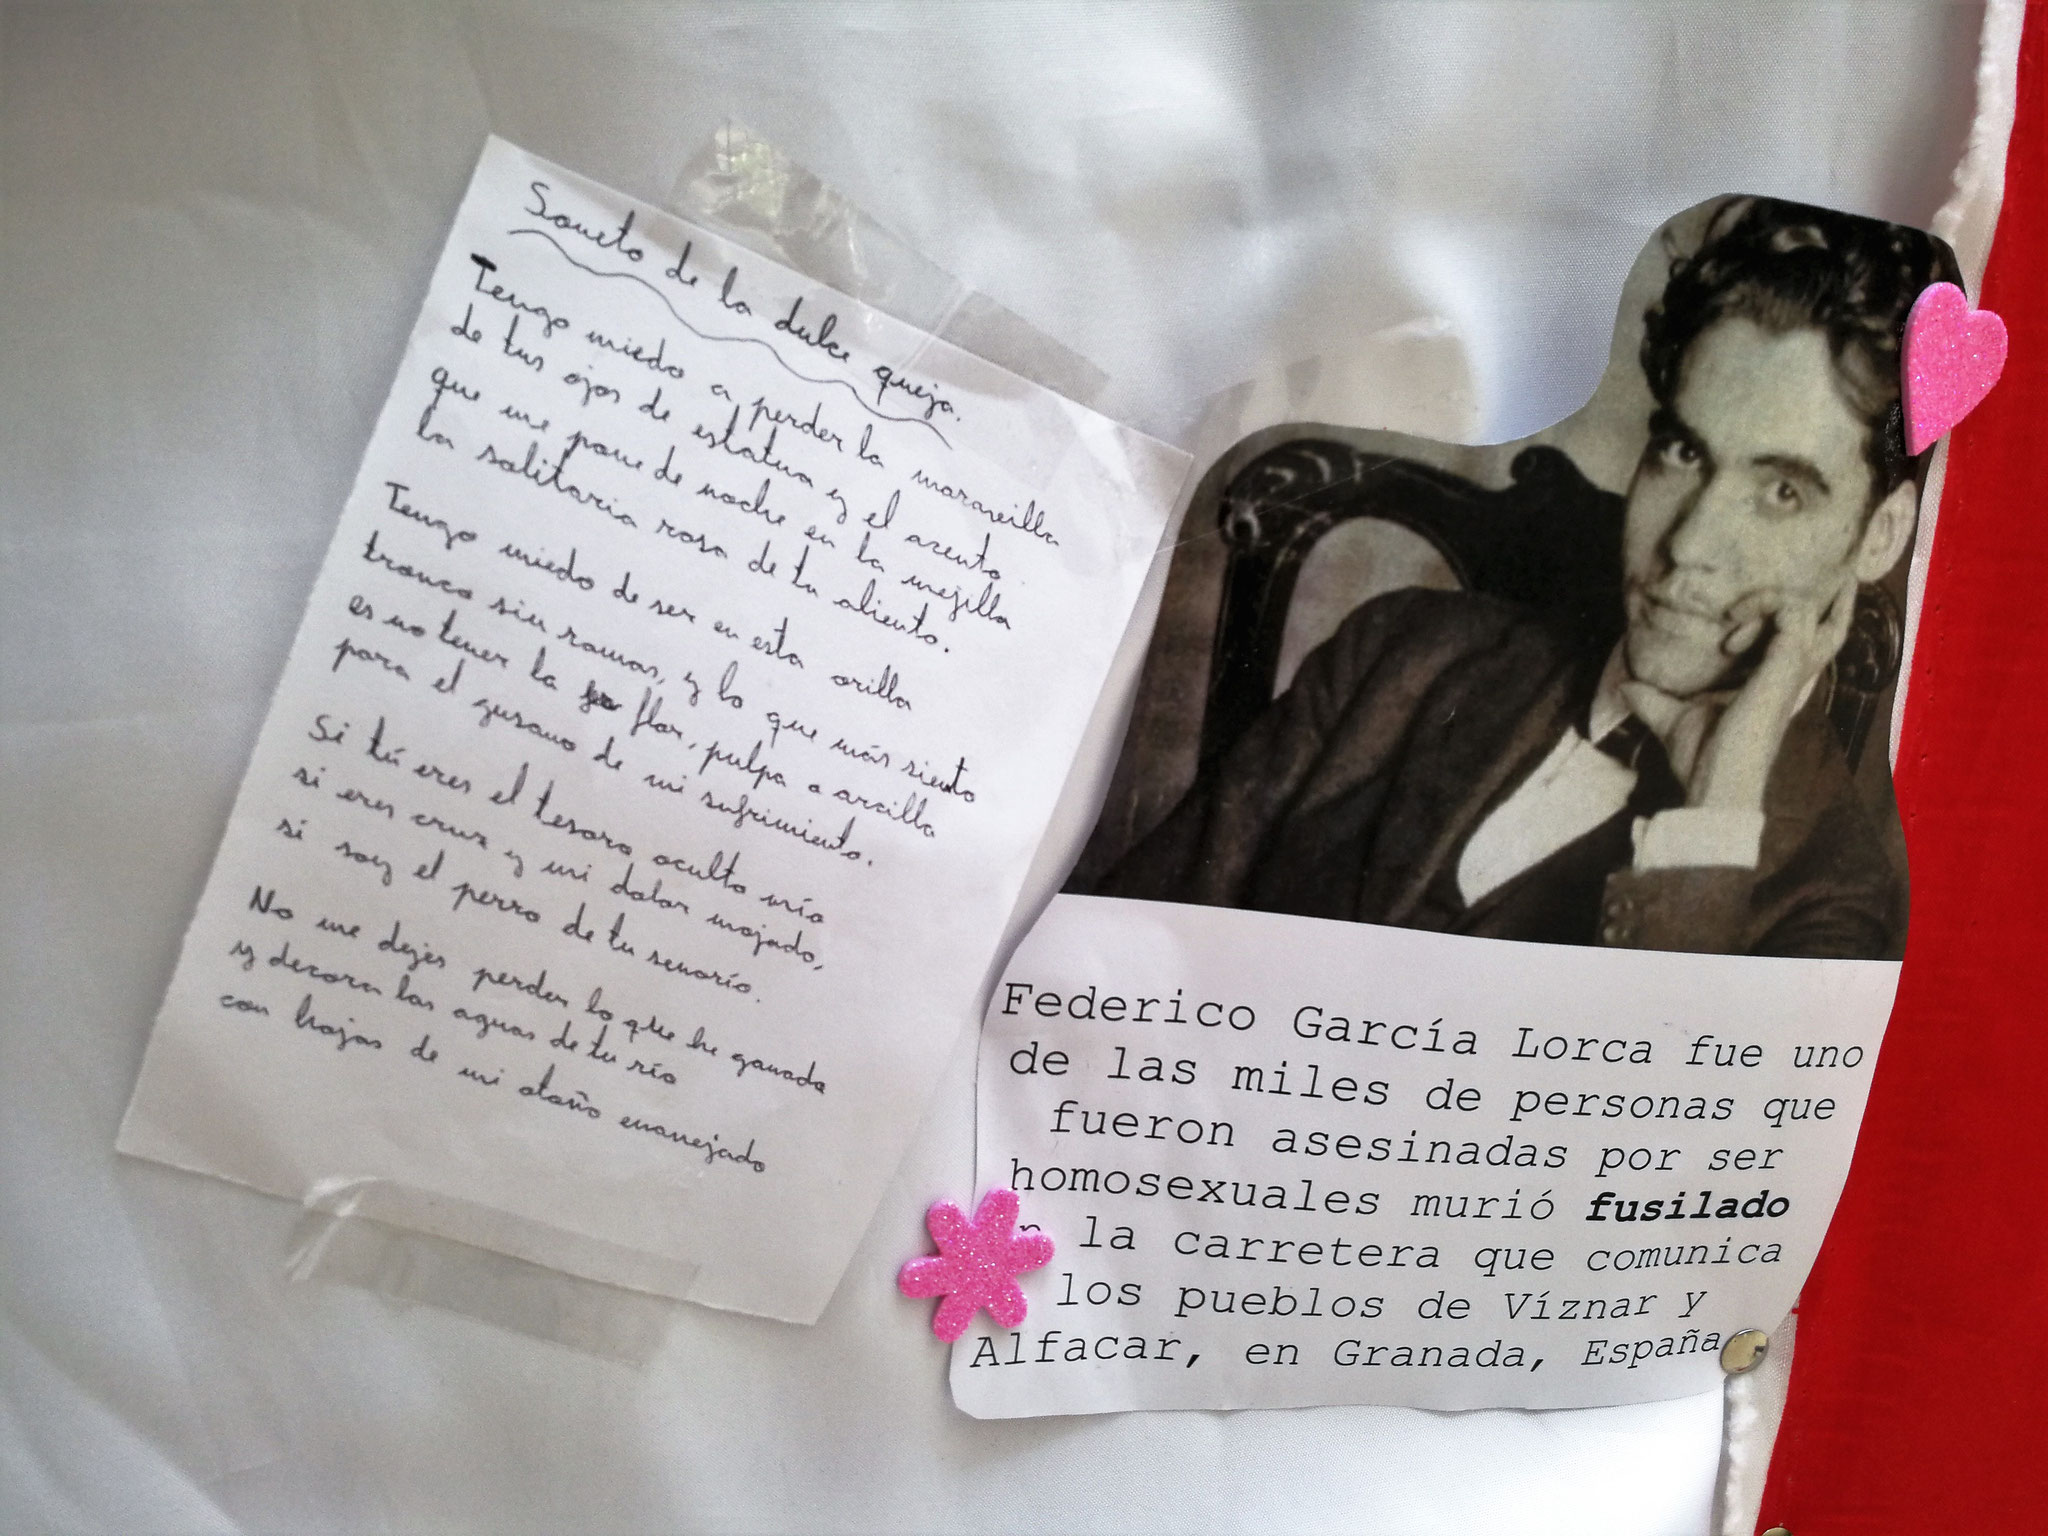 Soneto de la dulce queja.
Tengo miedo a perder la maravilla
de tus ojos de estatua y el acento
que me pone de noche en la mejilla
la solitaria rosa de tu aliento.
Tengo miedo de ser en esta orilla
tronco sin ramas, y lo que más siento
es no tener la flor, pulpa o arcilla
para el gusano de mi sufrimiento.
Si tú eres el tesoro oculto mío
si eres cruz y mi dolor mojado,
si soy el perro de tu senorío.
No me dejes perder lo que he ganado
y decora las aguas de tu río
con hojas de mi otoño enanejado
Federico García Lorca fue uno
de las miles de personas que
fueron asesinadas por ser
homosexuales murió fusilado
la carretera que comunica
los pueblos de Víznar y
Alfacar, en Granada, España